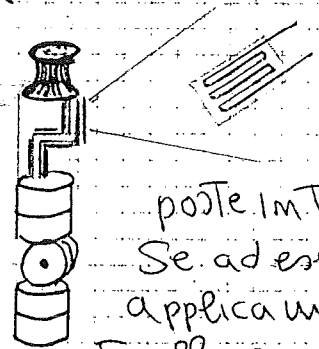 poste in T
Se ad es
applica un